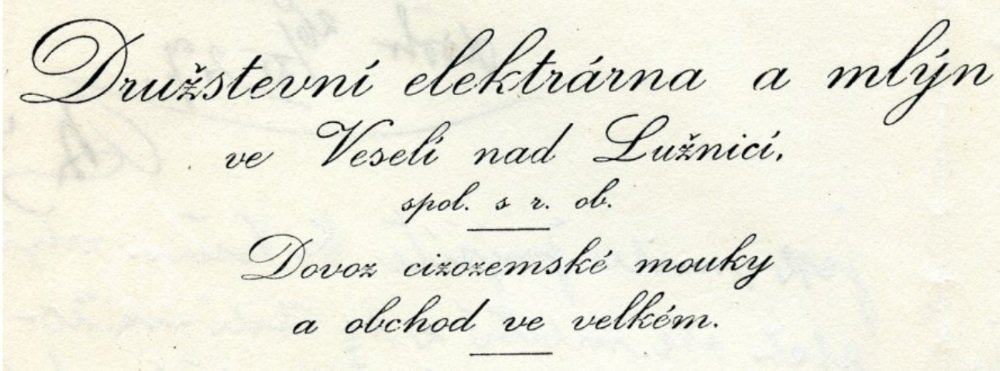 Družstevní elektrárna a mlýn
ve Veselí nad Lužnicí,
spol. s r. ob.
Dovoz cizozemské mouky
a obchod ve velkém.